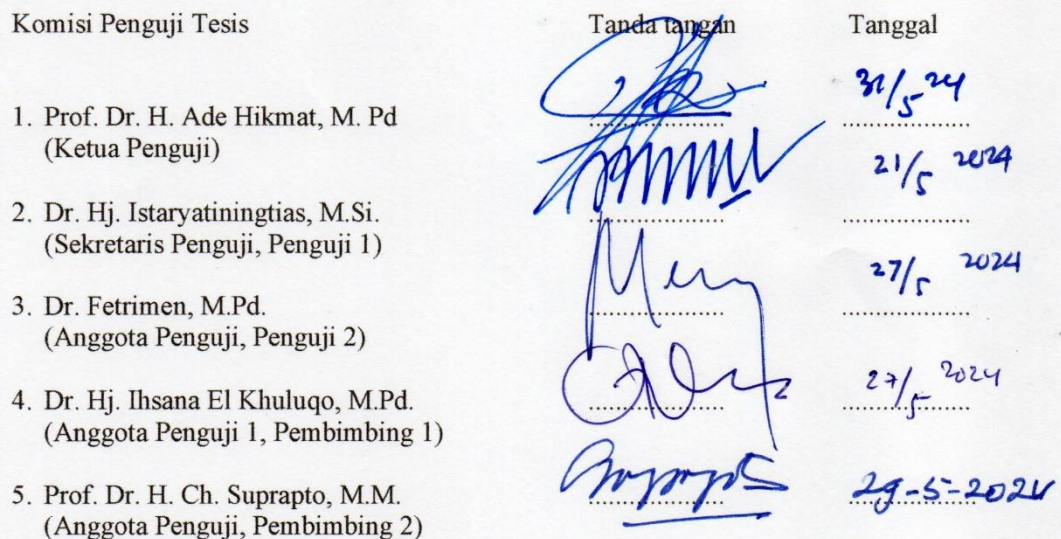 Komisi Penguji Tesis Tanda tangan Tanggal
31/5 24
1. Prof. Dr. H. Ade Hikmat, M. Pd ........................ ........................
(Ketua Penguji)
21/5 2024
2. Dr. Hj. Istaryatiningtias, M.Si. ........................ ........................
(Sekretaris Penguji, Penguji 1)
27/5 2024
3. Dr. Fetrimen, M.Pd. ........................ ........................
(Anggota Penguji, Penguji 2)
27/5 2024
4. Dr. Hj. Ihsana El Khuluqo, M.Pd. ........................ ........................
(Anggota Penguji 1, Pembimbing 1)
5. Prof. Dr. H. Ch. Suprapto, M.M. ........................ 29-5-2024
(Anggota Penguji, Pembimbing 2)